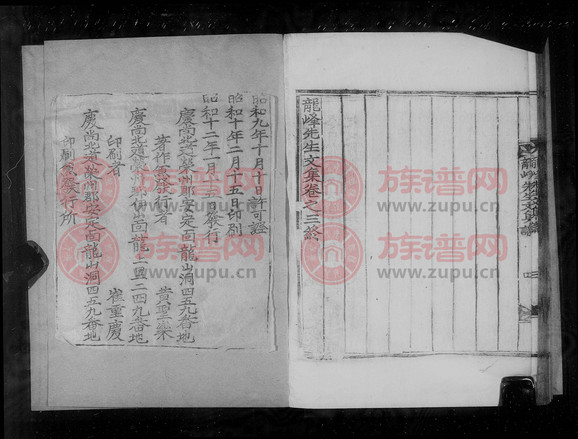 龍峰先生文集卷之三終
昭和九年十月十日許可證
昭和十年二月十五日印刷
昭和十二年一月十五日發行
慶尙北道榮州郡安定面龍山洞四五九番地
著作兼發行者 黃聖樂
印刷者 崔重慶
慶尙北道榮州郡安定面龍山洞四五九番地
印刷兼發行所
族谱网
www.zupu.cn
族谱网
www.zupu.cn
族谱网
www.zupu.cn
族谱网
www.zupu.cn